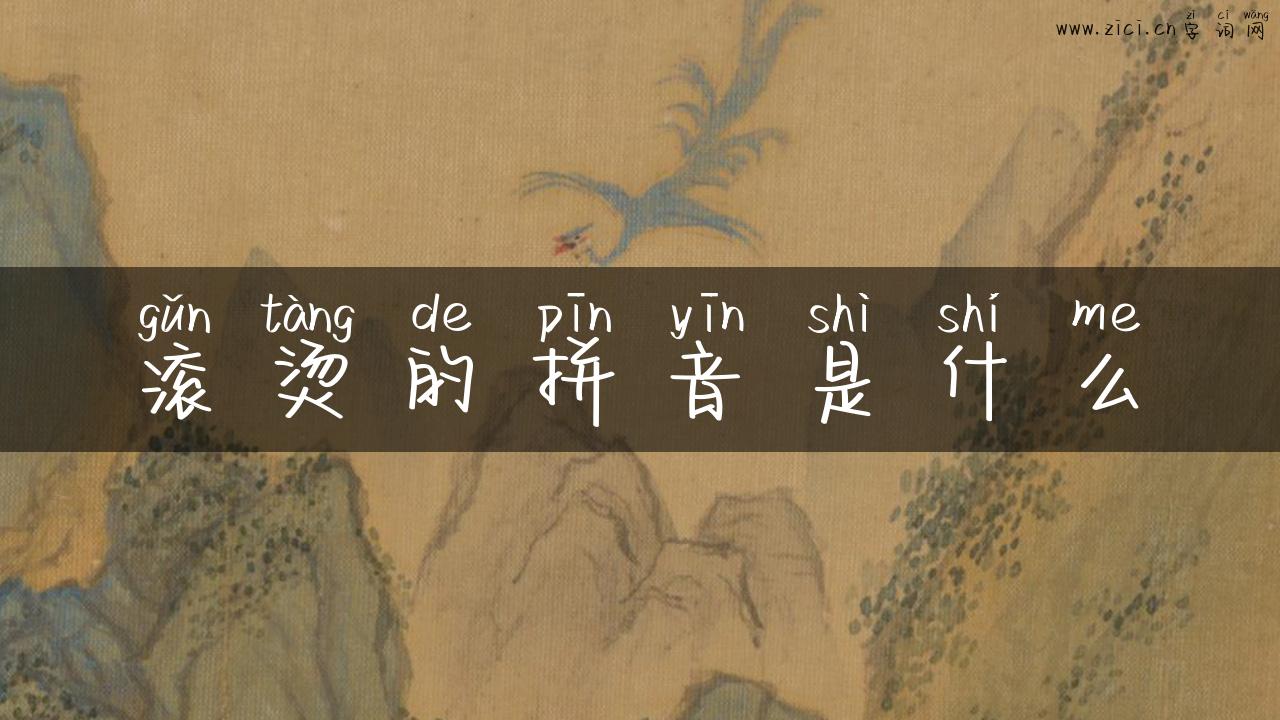 zì cí wǎng
www.zici.cn字词网
gǔn tàng de pīn yīn shì shí me
滚烫的拼音是什么